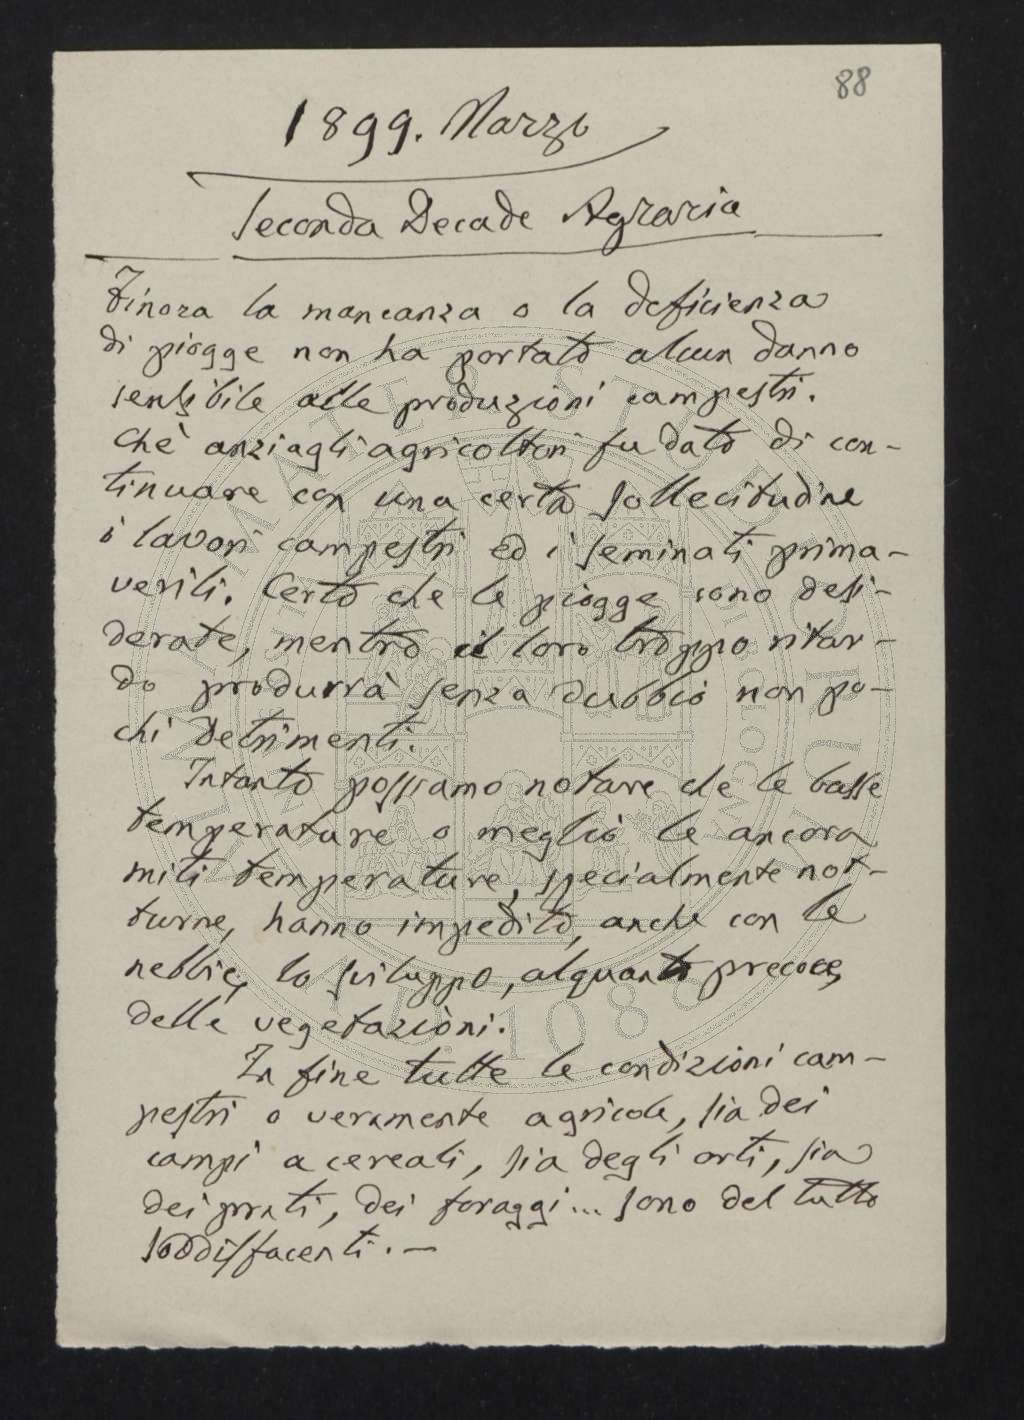 88
1899. Marzo
Seconda Decade Agraria
Finora la mancanza o la deficienza
di piogge non ha portato alcun danno
sensibile alle produzioni campestri.
Chè anzi agli agricoltori fu dato di con-
tinuare con una certa sollecitudine
i lavori campestri ed i seminati prima-
verili. Certo che le piogge sono desi-
derate, mentre il loro troppo ritar-
do produrrà senza dubbio non po-
chi detrimenti.
Intanto possiamo notare che le basse
temperature o meglio le ancora
miti temperature, specialmente not-
turne, hanno impedito, anche con le
nebbie, lo sviluppo, alquanto precoce,
delle vegetazioni.
In fine tutte le condizioni cam-
pestri o veramente agricole, sia dei
campi a cereali, sia degli orti, sia
dei prati, dei foraggi... sono del tutto
soddisfacenti. —
ALMA MATER STUDIORUM
A.D. 1088